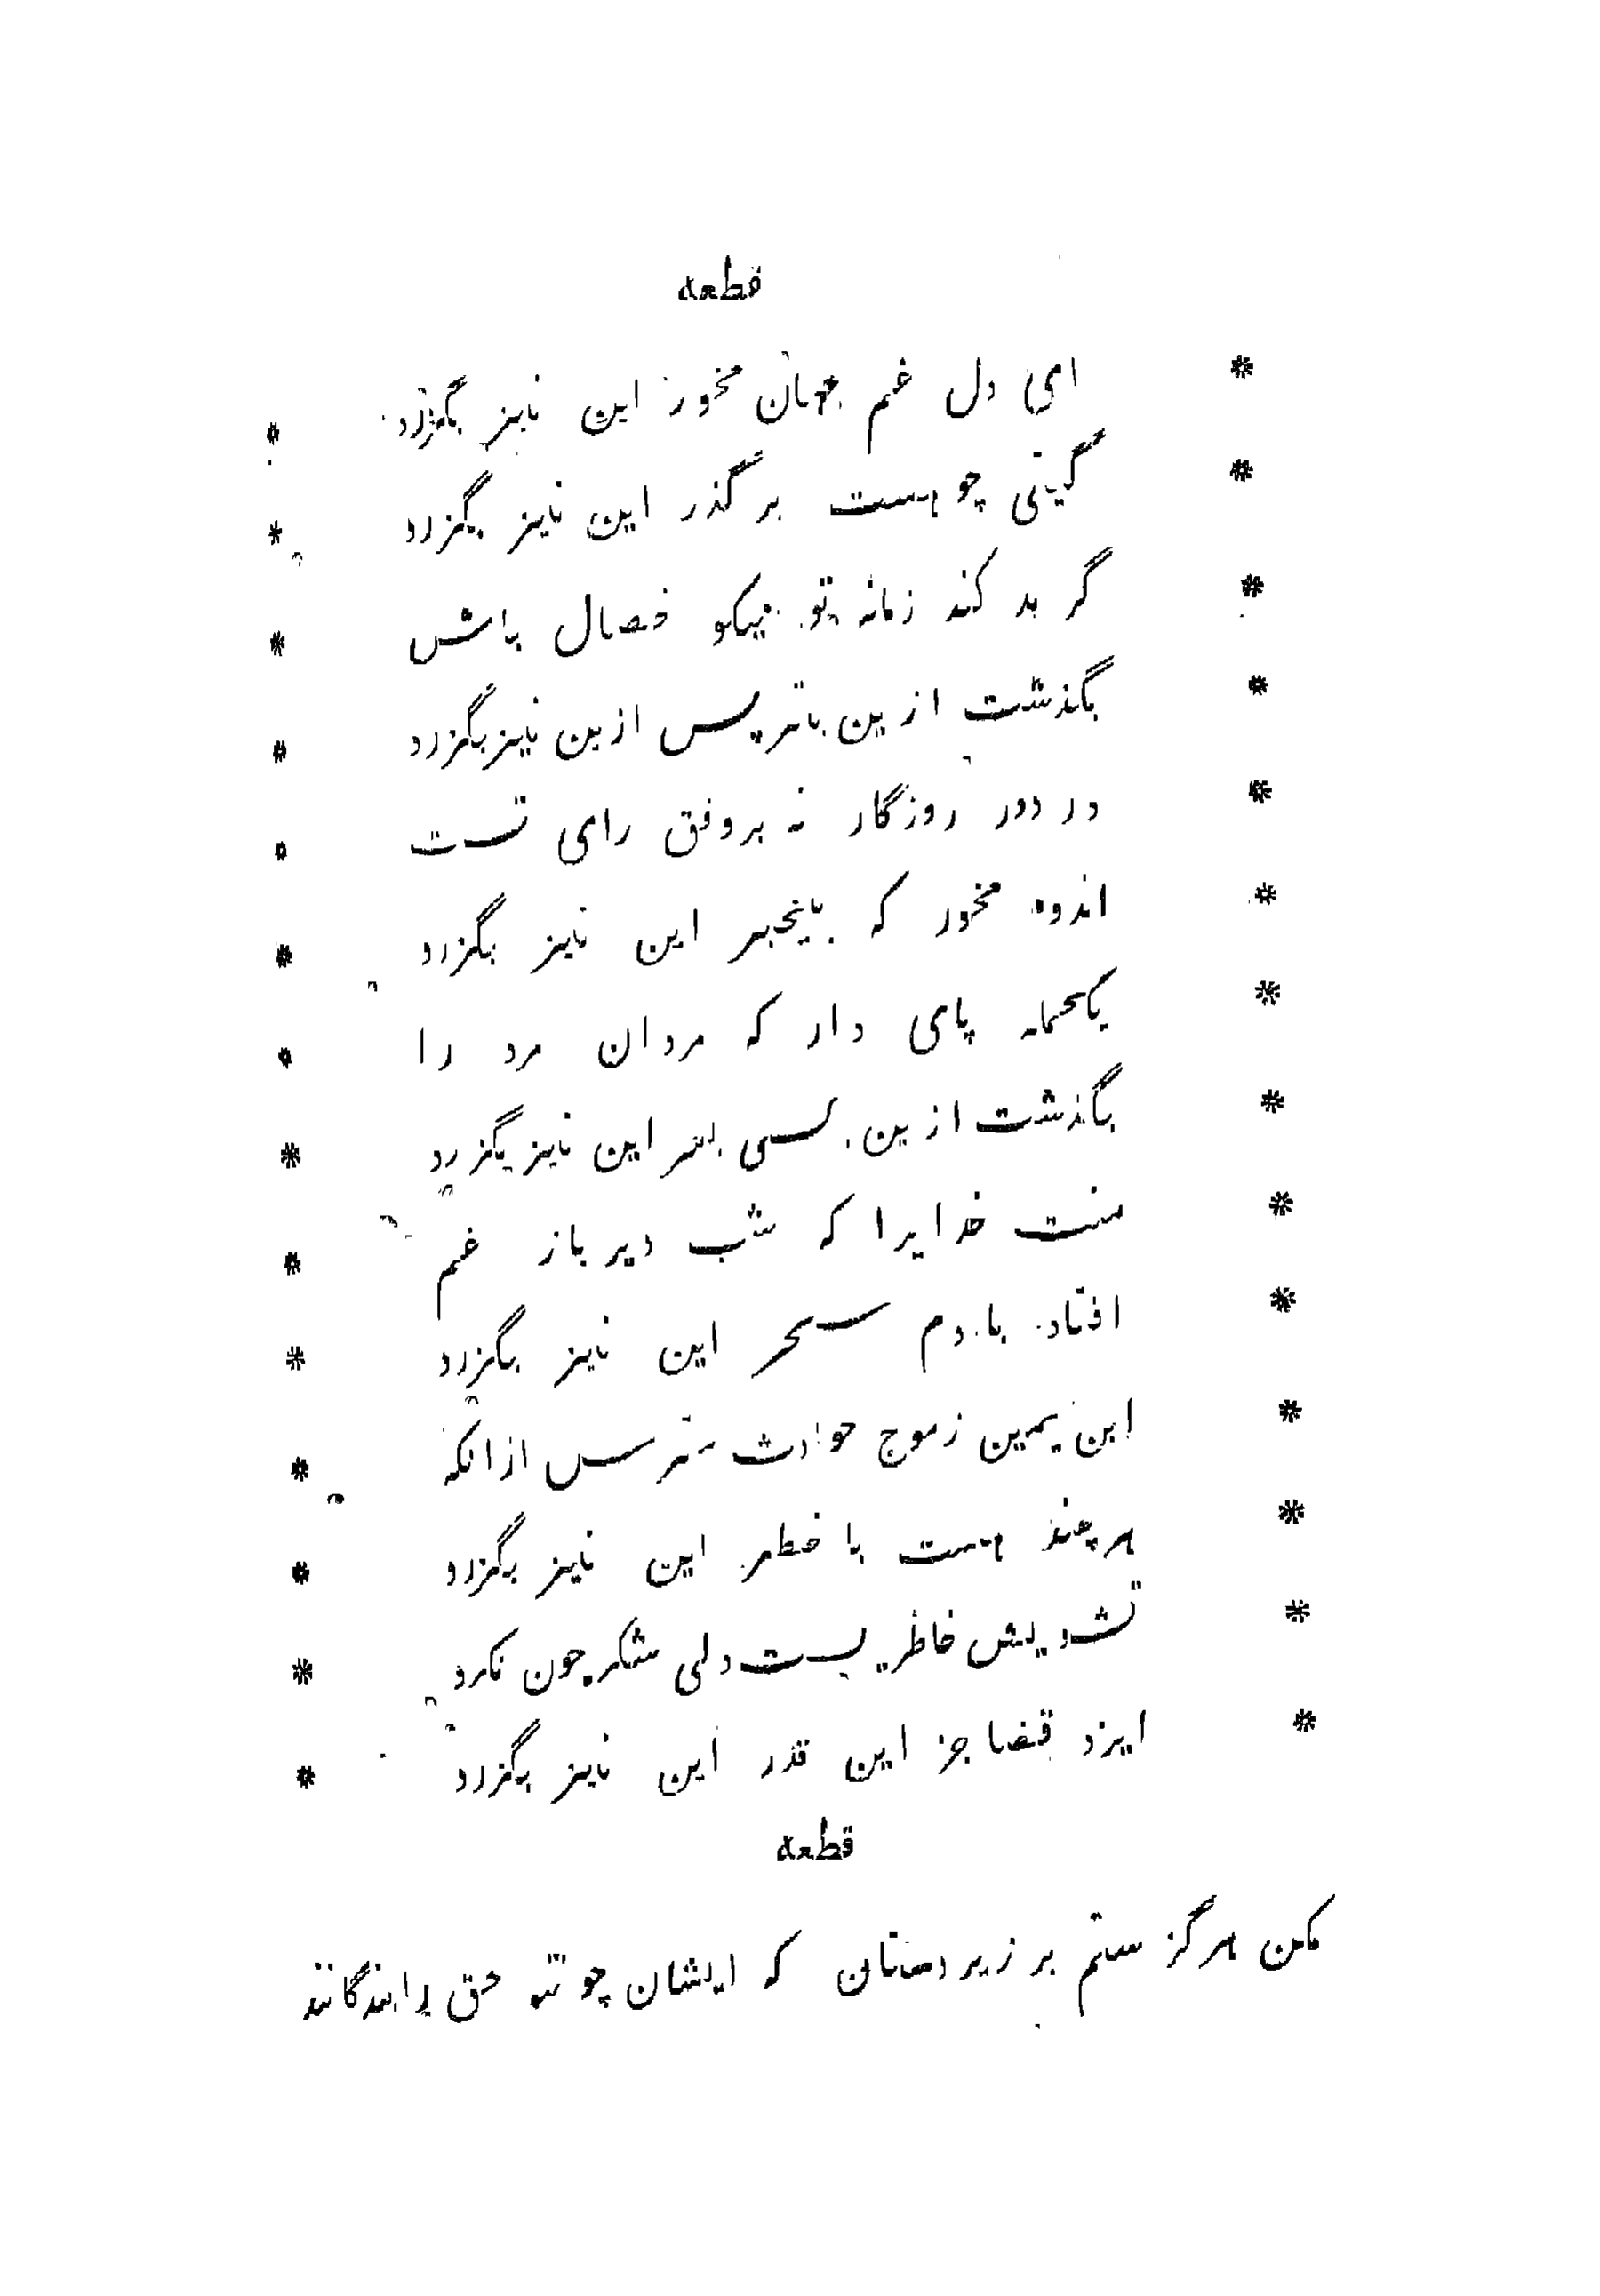 قطعه
ای دل غم جهان مخور این نیز بگزرد
گیتی چو هست بر گذر این نیز بگزرد
گر بد کند زمانه تو نیکو خصال باش
بگذشت ازین بتر پس ازین نیز بگزرد
در دور روزگار نه بر وفق رای تست
اندوه مخور که بیخبر این نیز بگزرد
یکحمله پای دار که مردان مرد را
بگذشت ازین بسی بسر این نیز بگزرد
منت خدایرا که شب دیر باز غم
افتاد با دم سحر این نیز بگزرد
ابن یمین ز موج حوادث مترس ازانکه
هر چند هست با خطر این نیز بگزرد
تشویش خاطریست ولی شکر چون نکرد
ایزد قضا جز این قدر این نیز بگزرد
قطعه
مکن هرگز ستم بر زیر دستان که ایشان چو تو حق را بندگانند